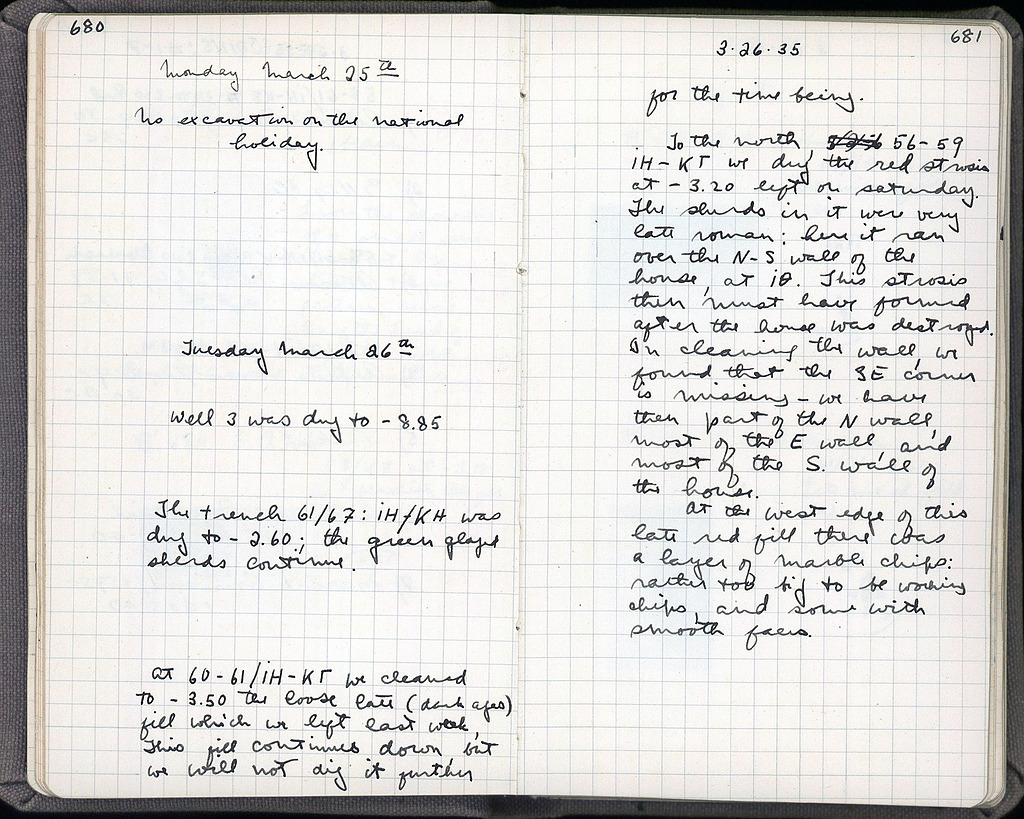 680
Monday March 25th
No excavation on the national
holiday.
Tuesday March 26th
Well 3 was dug to - 8.85
The trench 61/67: IH/KH was
dug to - 2.60; the green glazed
sherds continue.
At 60-61/IH-KΓ we cleaned
to - 3.50 the loose late (dark ages)
fill which we left last week,
This fill continues down but
we will not dig it further
681
3.26.35
for the time being.
To the north, 56-59
IH-KΓ we dug the red strosis
at - 3.20 left on saturday.
The sherds in it were very
late roman: here it ran
over the N-S wall of the
house, at IΘ. This strosis
then must have formed
after the house was destroyed.
In cleaning the wall, we
found that the SE corner
is missing - we have
then part of the N wall,
most of the E wall and
most of the S. wall of
the house.
At the west edge of this
late red fill there was
a layer of marble chips:
rather too big to be working
chips, and some with
smooth faces.